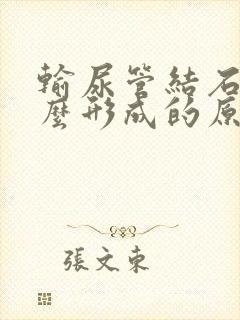 輸尿管結石
麼形成的原
張文東